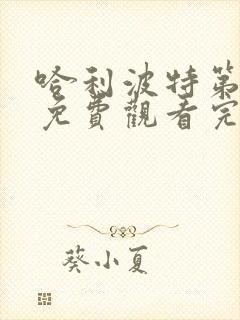 哈利波特第
免費觀看完
葵小夏